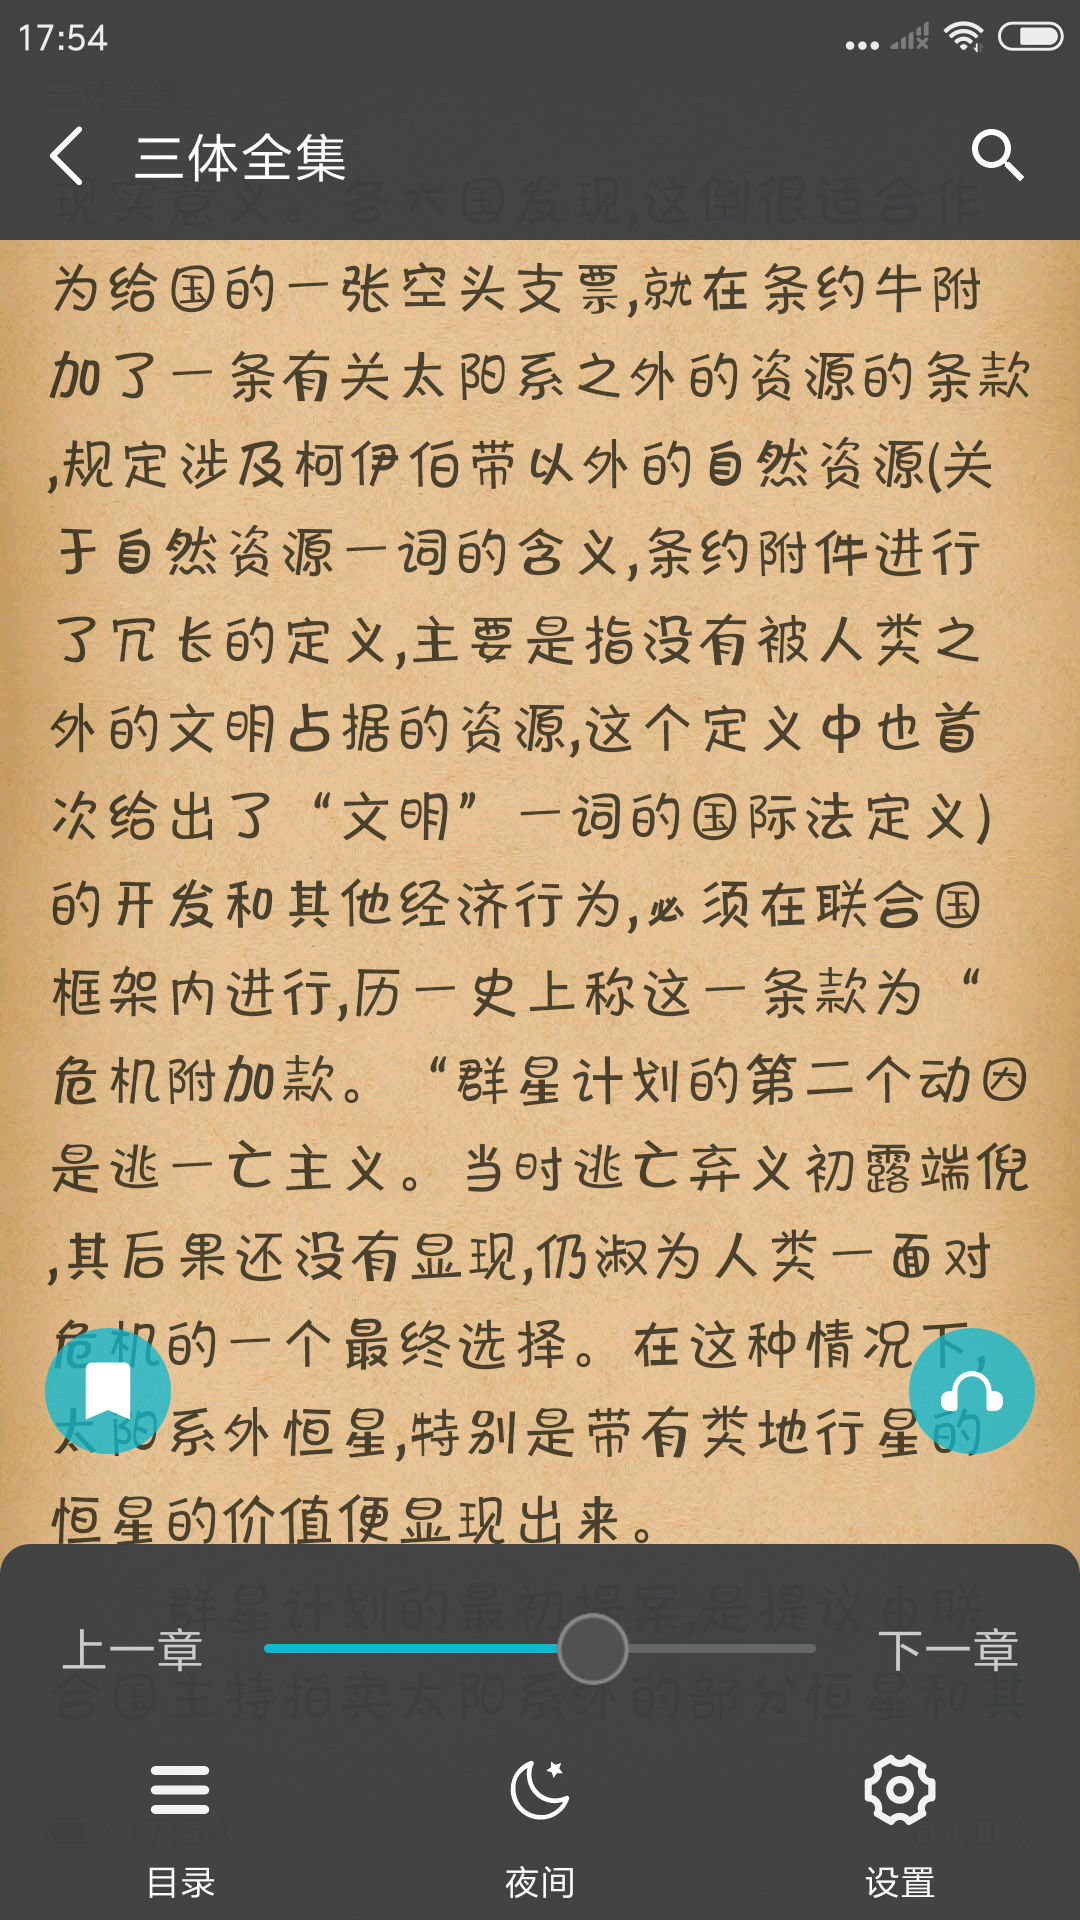 17:54
三体全集
三体全集
现实意义。各大国发现,这倒很适合作
为给国的一张空头支票,就在条约牛附
加了一条有关太阳系之外的资源的条款
,规定涉及柯伊伯带以外的自然资源(关
于自然资源一词的含义,条约附件进行
了冗长的定义,主要是指没有被人类之
外的文明占据的资源,这个定义中也首
次给出了“文明”一词的国际法定义)
的开发和其他经济行为,必须在联合国
框架内进行,历一史上称这一条款为“
危机附加款。“群星计划的第二个动因
是逃一亡主义。当时逃亡弃义初露端倪
,其后果还没有显现,仍淑为人类一面对
危机的一个最终选择。在这种情况下,
太阳系外恒星,特别是带有类地行星的
恒星的价值便显现出来。
群星计划的最初提案,是提议由联
上一章
下一章
合国主持拍卖太阳系外的部分恒星和其
17:54
61.0%
目录
夜间
设置